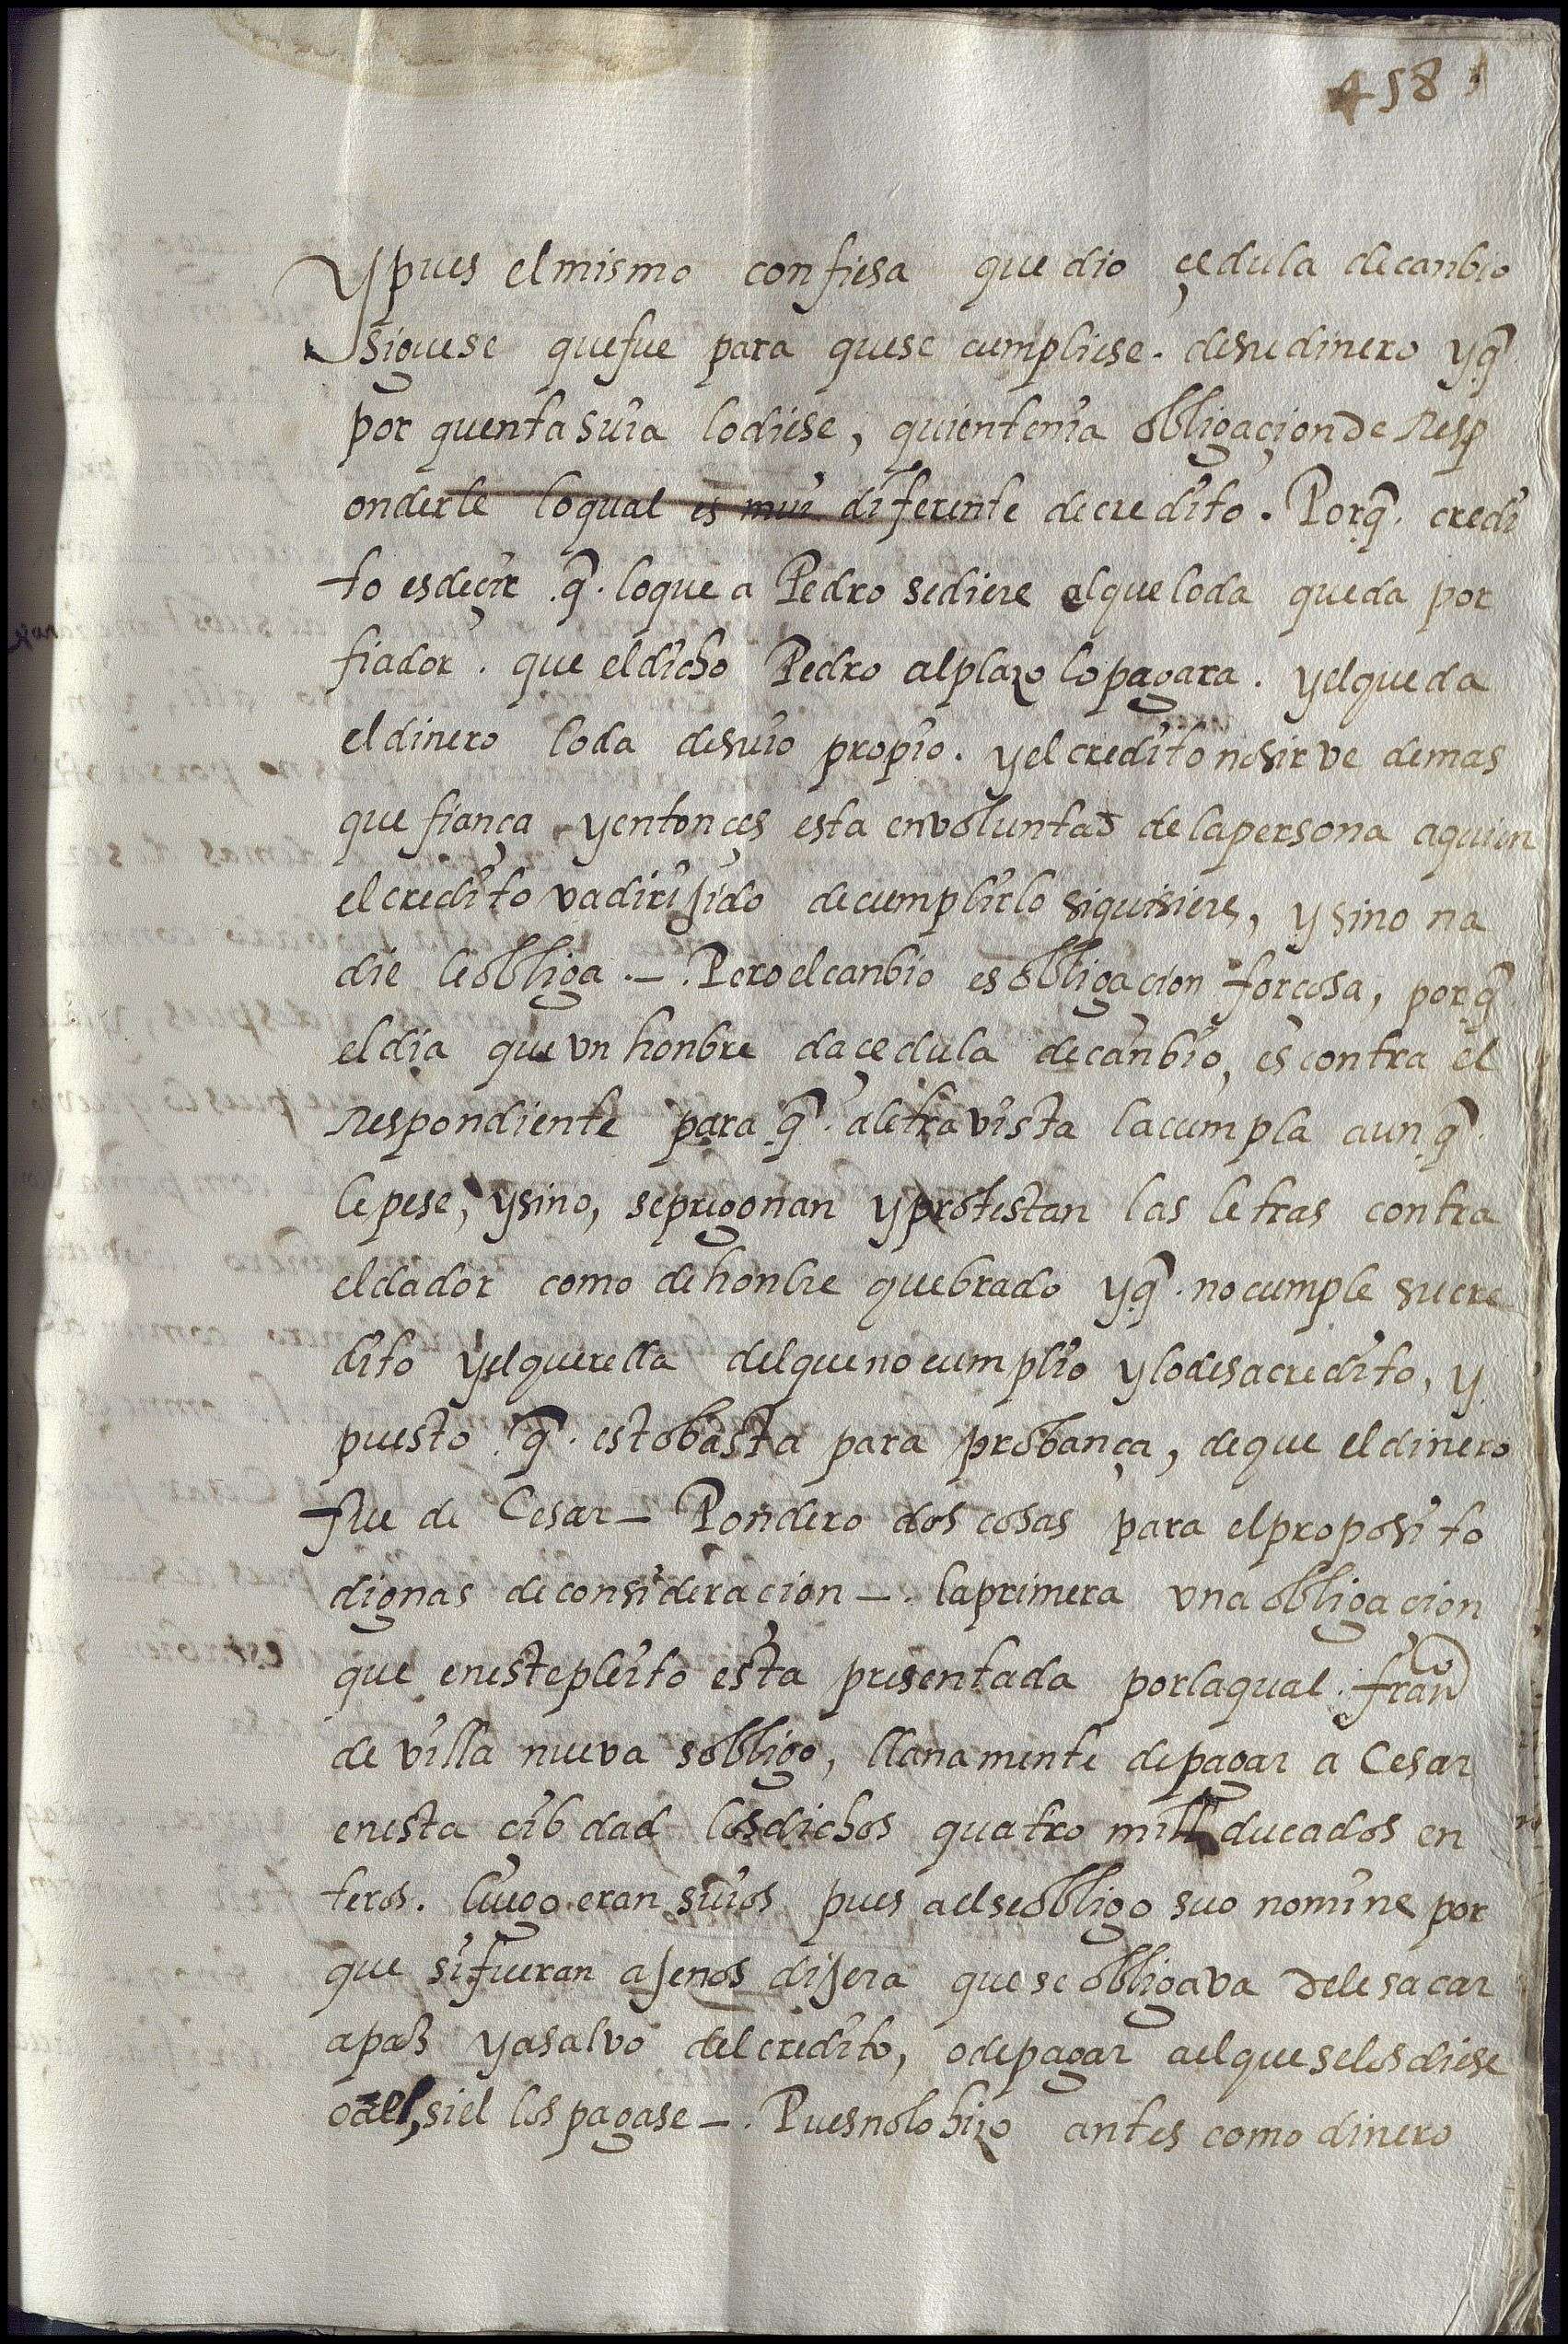 458
Y pues el mismo confiesa que dio çedula de canbio
siguese que fue para que se cumpliese. de su dinero y q̃
por quenta suia lo diese, quien tenia obligaçion de Resp
onderle lo qual es mui diferente de credito. Porq̃. credi
to es deçir .q̃. lo que a Pedro se diere el que lo da queda por
fiador. que el dicho Pedro al plazo lo pagara. y el que da
el dinero lo da de suio propio. y el credito no sirve de mas
que fiança y entonçes esta en voluntad de la persona a quien
el credito va dirijido de cumplirlo si quisiere, y sino na
die le obliga. —. Pero el canbio es obligaçion forçosa, porq̃
el dia que un honbre da çedula de canbio, es contra el
Respondiente para .q̃. a letra vista la cumpla aunq̃.
le pese, y sino, se pregonan y protestan las letras contra
el dador como de honbre quebrado y q̃. no cumple su cre
dito y el querella del que no cumplio y lo desacredito, y
puesto .q̃. esto basta para probança, de que el dinero
fue de Cesar — Pondero dos cosas para el proposito
dignas de consideraçion —. la primera una obligaçion
que en este pleito esta presentada por la qual. fran^co
de villa nueva s obligo, llanamente de pagar a Cesar
en esta cibdad los dichos quatro mill ducados en
teros. luego eran suios pues a el se obligo suo nomine por
que si fueran ajenos dijera que se obligava de le sacar
a paz y a salvo del credito, o de pagar a el que se los diese
o a el, si el los pagase —. Pues no lo hizo antes como dinero